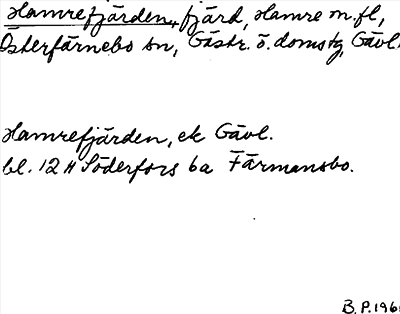 Hamrefjärden, fjärd, Hamre m.fl,
Österfärnebo sn, Gästr. ö. domsfg, Gävl.
Hamrefjärden, ek Gävl.
bl. 12 H Söderfors 6a Färmansbo.
B.P.196